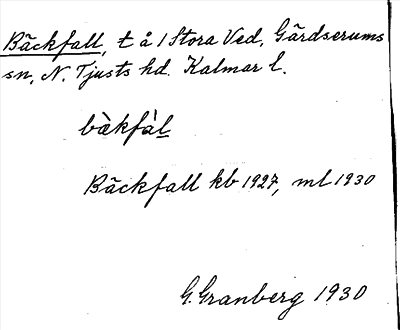 Bäckfall, t å 1 Stora Ved, Gärdserums
sn, N. Tjusts hd. Kalmar l.
bàkfàl
Bäckfall kb 1927, ml 1930
G. Granberg 1930